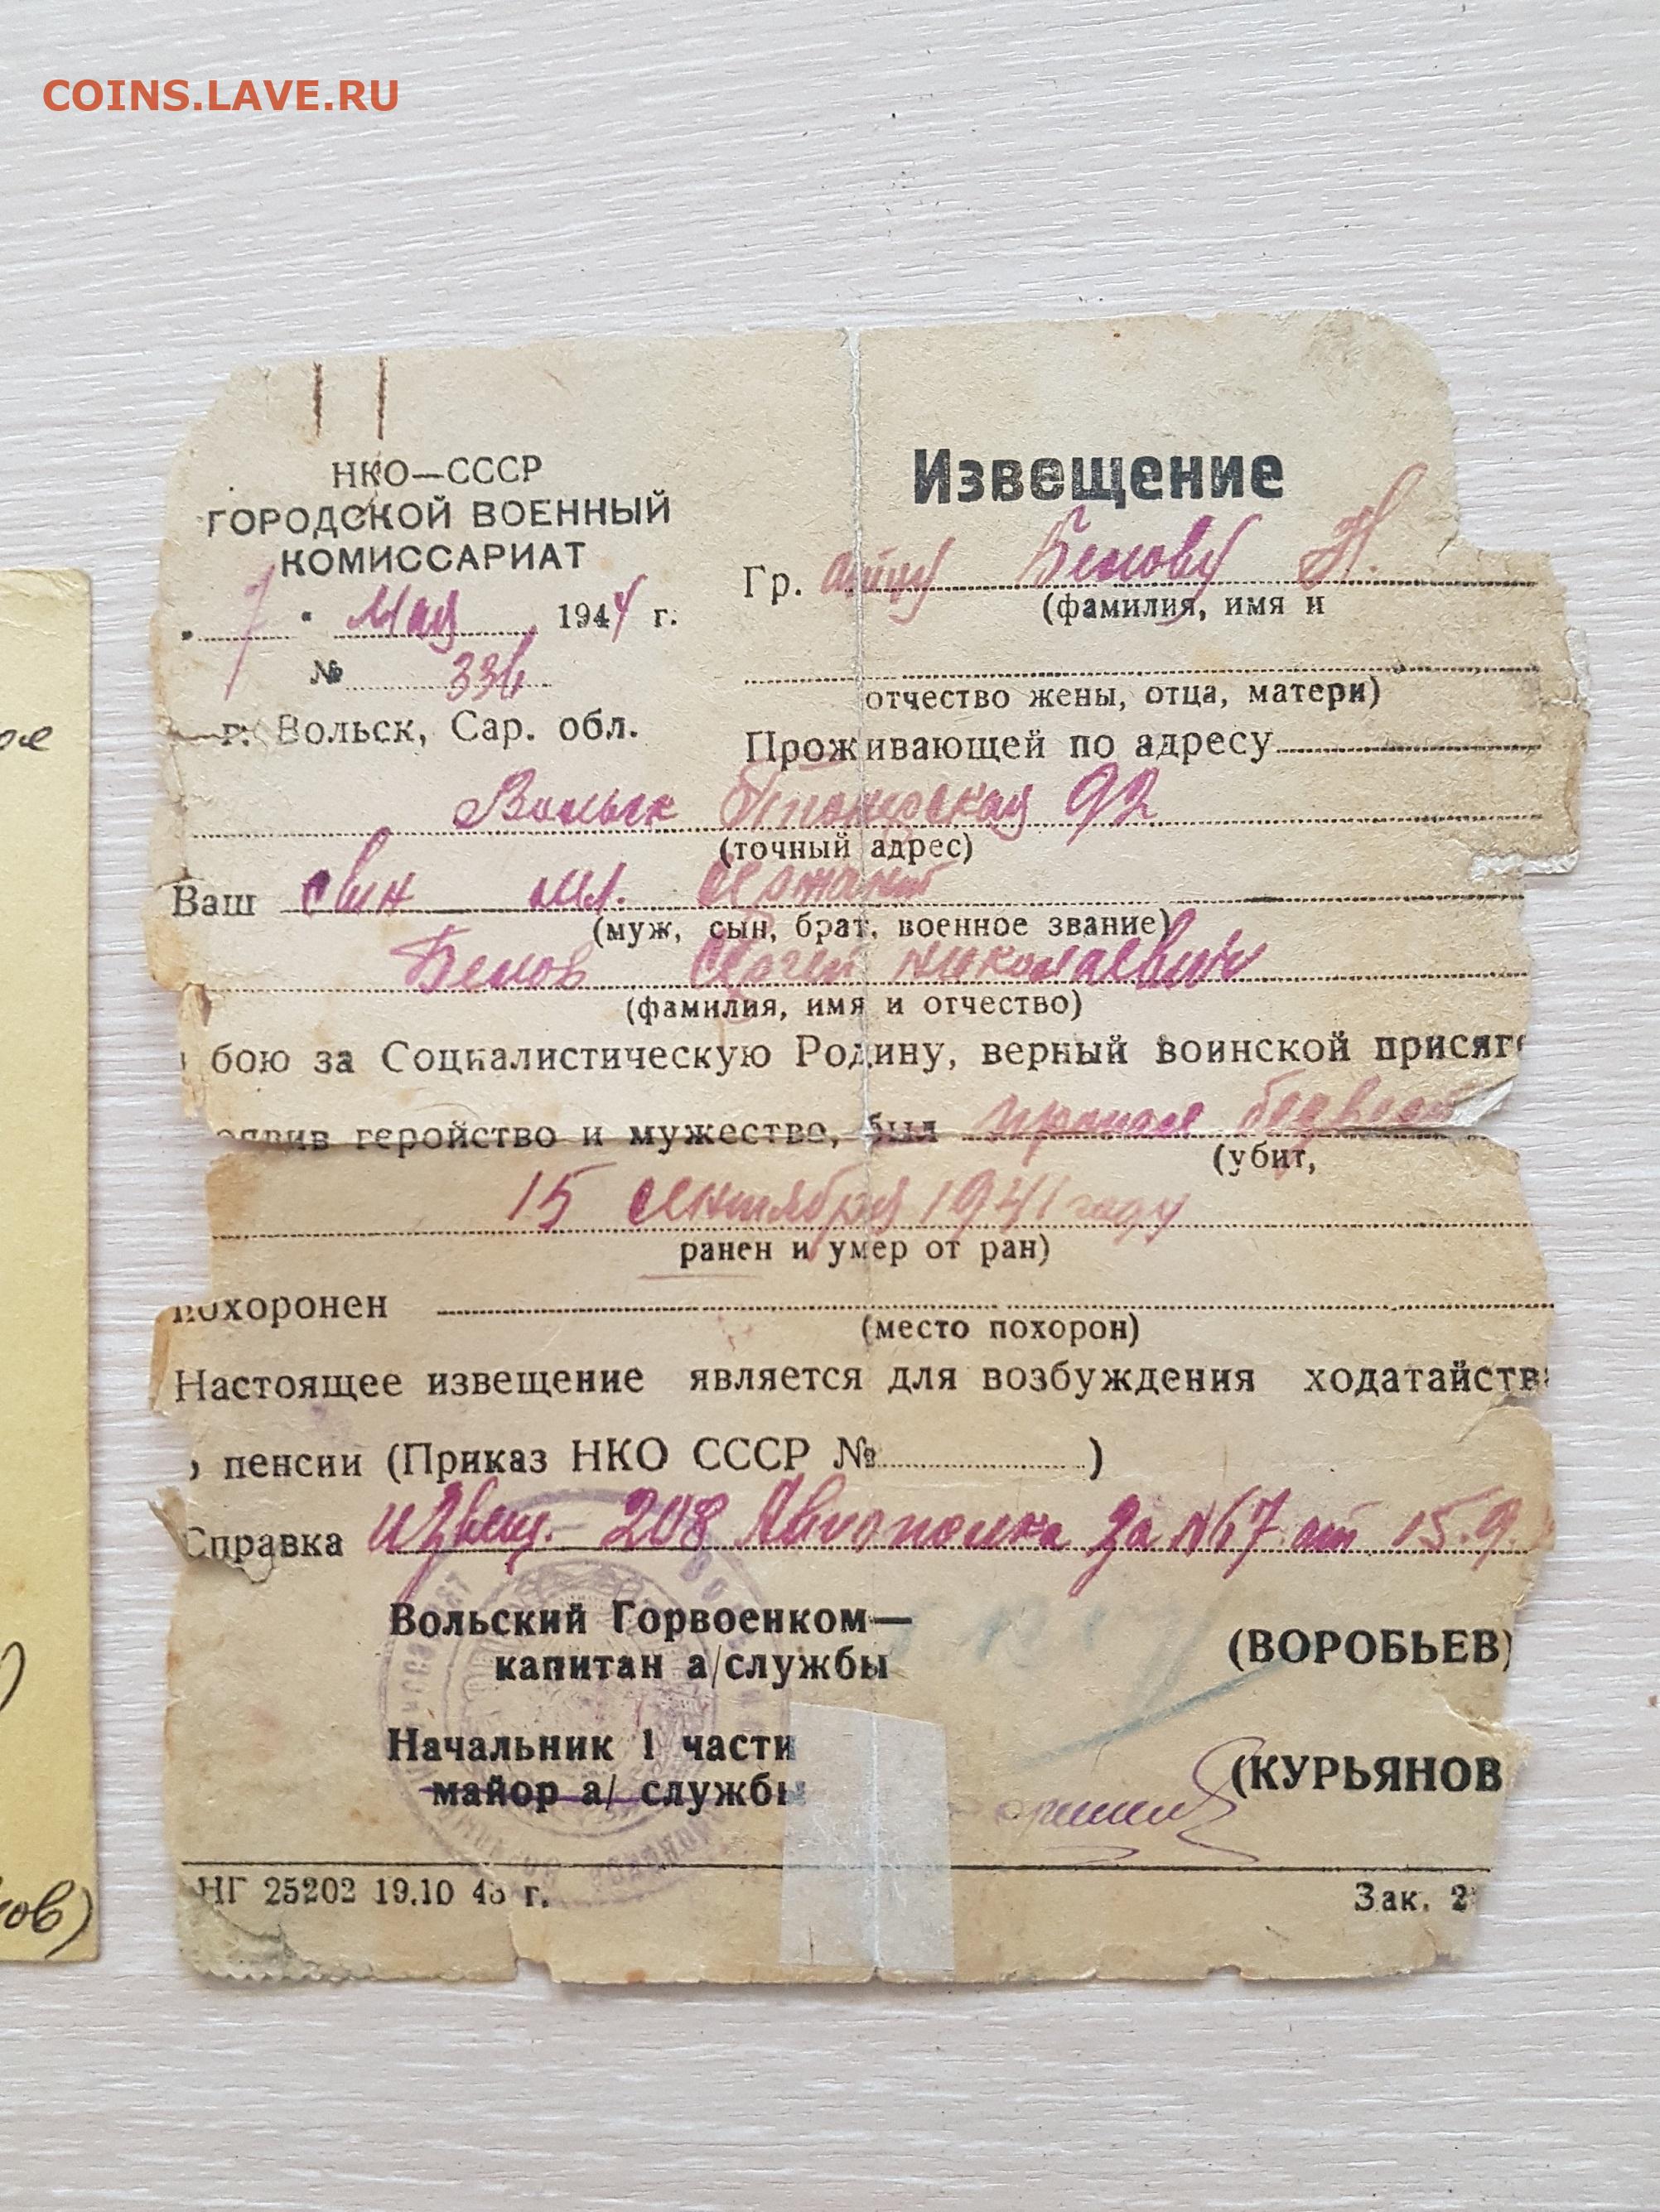 COINS.LAVE.RU
НКО—СССР
ГОРОДСКОЙ ВОЕННЫЙ
КОМИССАРИАТ
7 " мая 1944 г.
№ 336
г. Вольск, Сар. обл.
Извещение
Гр. отцу Белову Н.
(фамилия, имя и
отчество жены, отца, матери)
Проживающей по адресу
Вольск 92
(точный адрес)
Ваш сын мл. сержант
(муж, сын, брат, военное звание)
Белов Сергей Николаевич
(фамилия, имя и отчество)
бою за Социалистическую Родину, верный воинской присяге
оявив геройство и мужество, был пропал безвести
(убит,
15 сентября 1941 году
ранен и умер от ран)
похоронен
(место похорон)
Настоящее извещение является для возбуждения ходатайств
о пенсии (Приказ НКО СССР № )
Справка Извещ. 208 Автополка за №67 от 15.9.
Вольский Горвоенком—
капитан а/службы
(ВОРОБЬЕВ)
Начальник 1 части
майор а/ службы
(КУРЬЯНОВ
НГ 25202 19.10 43 г.
Зак. 2
ое
ов)